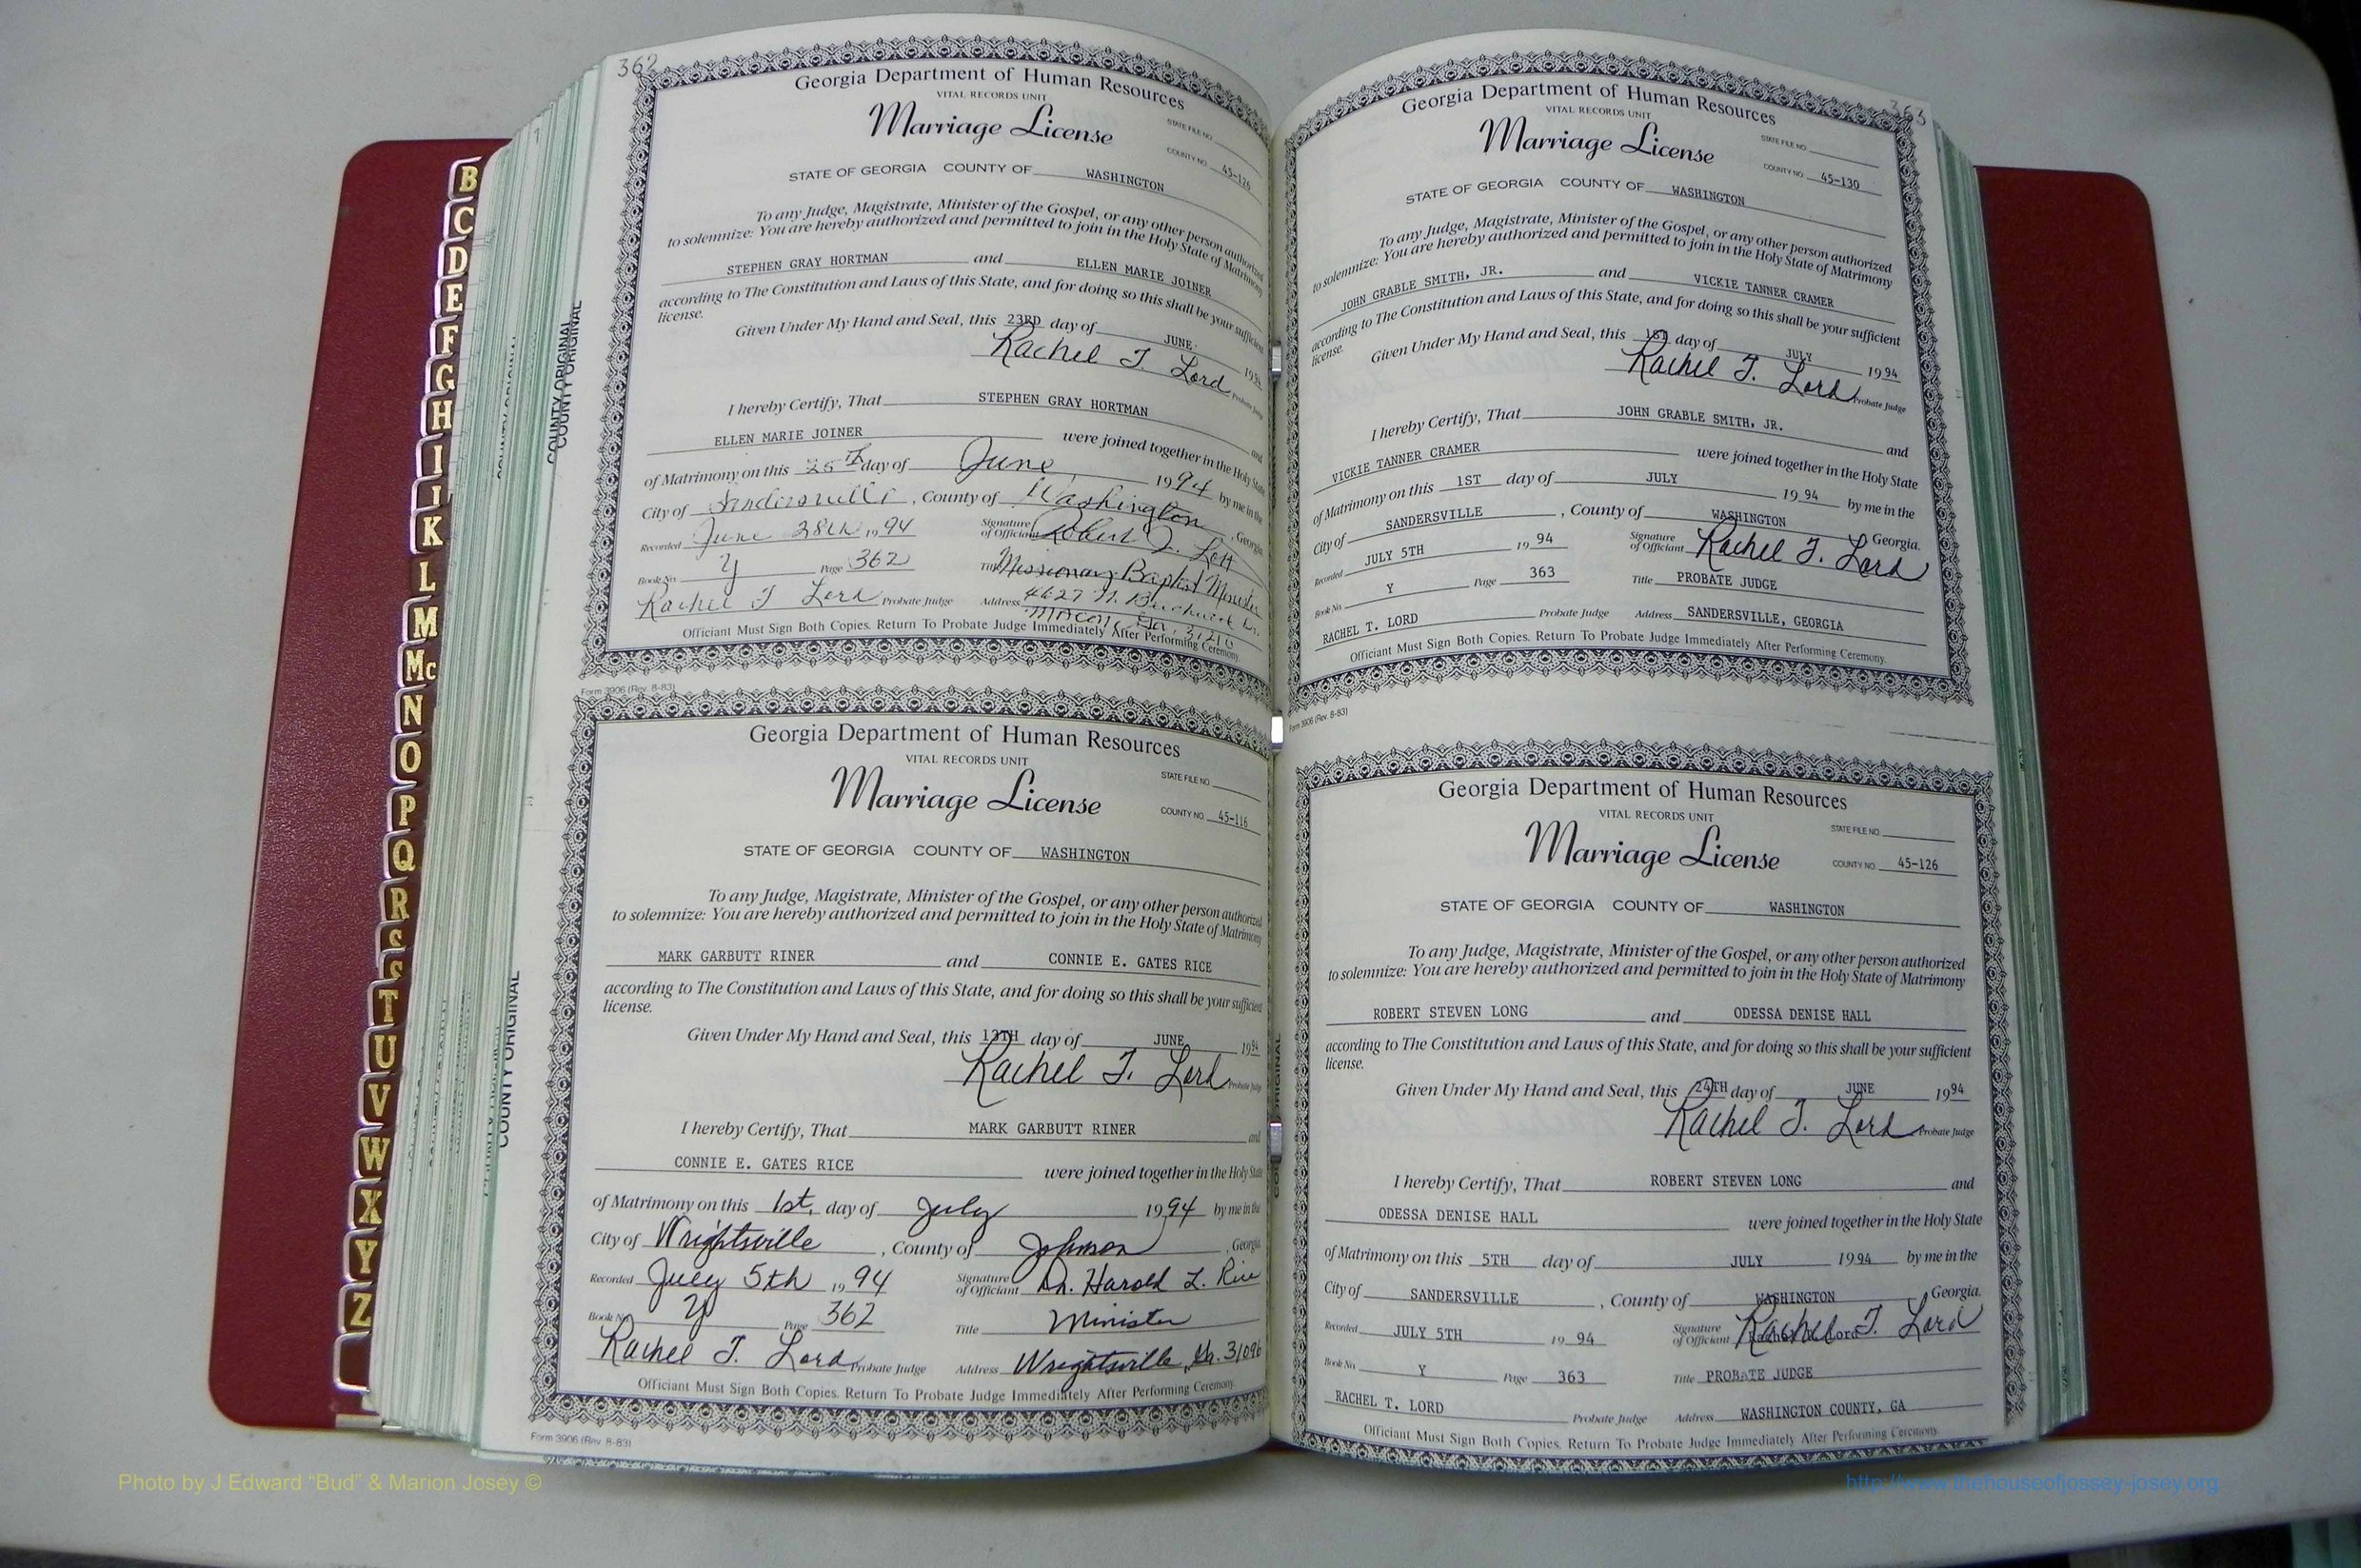 362
Georgia Department of Human Resources
VITAL RECORDS UNIT
Marriage License
STATE FILE NO.
COUNTY NO. 45-126
STATE OF GEORGIA COUNTY OF WASHINGTON
To any Judge, Magistrate, Minister of the Gospel, or any other person authorized
to solemnize: You are hereby authorized and permitted to join in the Holy State of Matrimony
STEPHEN GRAY HORTMAN and ELLEN MARIE JOINER
according to The Constitution and Laws of this State, and for doing so this shall be your sufficient
license.
Given Under My Hand and Seal, this 23RD day of JUNE 1994
Rachel T. Lord Probate Judge
I hereby Certify, That STEPHEN GRAY HORTMAN and
ELLEN MARIE JOINER were joined together in the Holy State
of Matrimony on this 25th day of June 1994 by me in the
City of Sandersville, County of Washington, Georgia
Recorded June 28th 1994 Signature of Officiant Robert J. Lott
Book No. Y Page 362 Title Missionary Baptist Minister
Rachel T Lord Probate Judge Address 4627 N.
Macon, Ga.
Officiant Must Sign Both Copies. Return To Probate Judge Immediately After Performing Ceremony.
Form 3906 (Rev. 8-83)
Georgia Department of Human Resources
VITAL RECORDS UNIT
Marriage License
STATE FILE NO.
COUNTY NO. 45-116
STATE OF GEORGIA COUNTY OF WASHINGTON
To any Judge, Magistrate, Minister of the Gospel, or any other person authorized
to solemnize: You are hereby authorized and permitted to join in the Holy State of Matrimony
MARK GARBUTT RINER and CONNIE E. GATES RICE
according to The Constitution and Laws of this State, and for doing so this shall be your sufficient
license.
Given Under My Hand and Seal, this 13TH day of JUNE 1994
Rachel T. Lord Probate Judge
I hereby Certify, That MARK GARBUTT RINER and
CONNIE E. GATES RICE were joined together in the Holy State
of Matrimony on this 1st. day of July 1994 by me in the
City of Wrightsville, County of Johnson, Georgia
Recorded July 5th 1994 Signature of Officiant Dr. Harold L. Rice
Book No. Y Page 362 Title Minister
Rachel T. Lord Probate Judge Address Wrightsville, Ga. 31096
Officiant Must Sign Both Copies. Return To Probate Judge Immediately After Performing Ceremony.
Form 3906 (Rev. 8-83)
363
Georgia Department of Human Resources
VITAL RECORDS UNIT
Marriage License
STATE FILE NO.
COUNTY NO. 45-130
STATE OF GEORGIA COUNTY OF WASHINGTON
To any Judge, Magistrate, Minister of the Gospel, or any other person authorized
to solemnize: You are hereby authorized and permitted to join in the Holy State of Matrimony
JOHN GRABLE SMITH, JR. and VICKIE TANNER CRAMER
according to The Constitution and Laws of this State, and for doing so this shall be your sufficient
license.
Given Under My Hand and Seal, this 1ST day of JULY 1994
Rachel T. Lord Probate Judge
I hereby Certify, That JOHN GRABLE SMITH, JR. and
VICKIE TANNER CRAMER were joined together in the Holy State
of Matrimony on this 1ST day of JULY 1994 by me in the
City of SANDERSVILLE, County of WASHINGTON Georgia.
Recorded JULY 5TH 1994 Signature of Officiant Rachel T. Lord
Book No. Y Page 363 Title PROBATE JUDGE
RACHEL T. LORD Probate Judge Address SANDERSVILLE, GEORGIA
Officiant Must Sign Both Copies. Return To Probate Judge Immediately After Performing Ceremony.
Form 3906 (Rev. 8-83)
Georgia Department of Human Resources
VITAL RECORDS UNIT
Marriage License
STATE FILE NO.
COUNTY NO. 45-126
STATE OF GEORGIA COUNTY OF WASHINGTON
To any Judge, Magistrate, Minister of the Gospel, or any other person authorized
to solemnize: You are hereby authorized and permitted to join in the Holy State of Matrimony
ROBERT STEVEN LONG and ODESSA DENISE HALL
according to The Constitution and Laws of this State, and for doing so this shall be your sufficient
license.
Given Under My Hand and Seal, this 24TH day of JUNE 1994
Rachel T. Lord Probate Judge
I hereby Certify, That ROBERT STEVEN LONG and
ODESSA DENISE HALL were joined together in the Holy State
of Matrimony on this 5TH day of JULY 1994 by me in the
City of SANDERSVILLE, County of WASHINGTON, Georgia.
Recorded JULY 5TH 1994 Signature of Officiant Rachel T. Lord
Book No. Y Page 363 Title PROBATE JUDGE
RACHEL T. LORD Probate Judge Address WASHINGTON COUNTY, GA
Officiant Must Sign Both Copies. Return To Probate Judge Immediately After Performing Ceremony.
B
C
D
E
F
G
H
I
J
K
L
M
Mc
N
O
P
Q
R
S
S
T
U
V
W
X
Y
Z
COUNTY ORIGINAL
COUNTY ORIGINAL
COUNTY ORIGINAL
Photo by J Edward "Bud" & Marion Josey ©
http://www.thehouseofjossey-josey.org